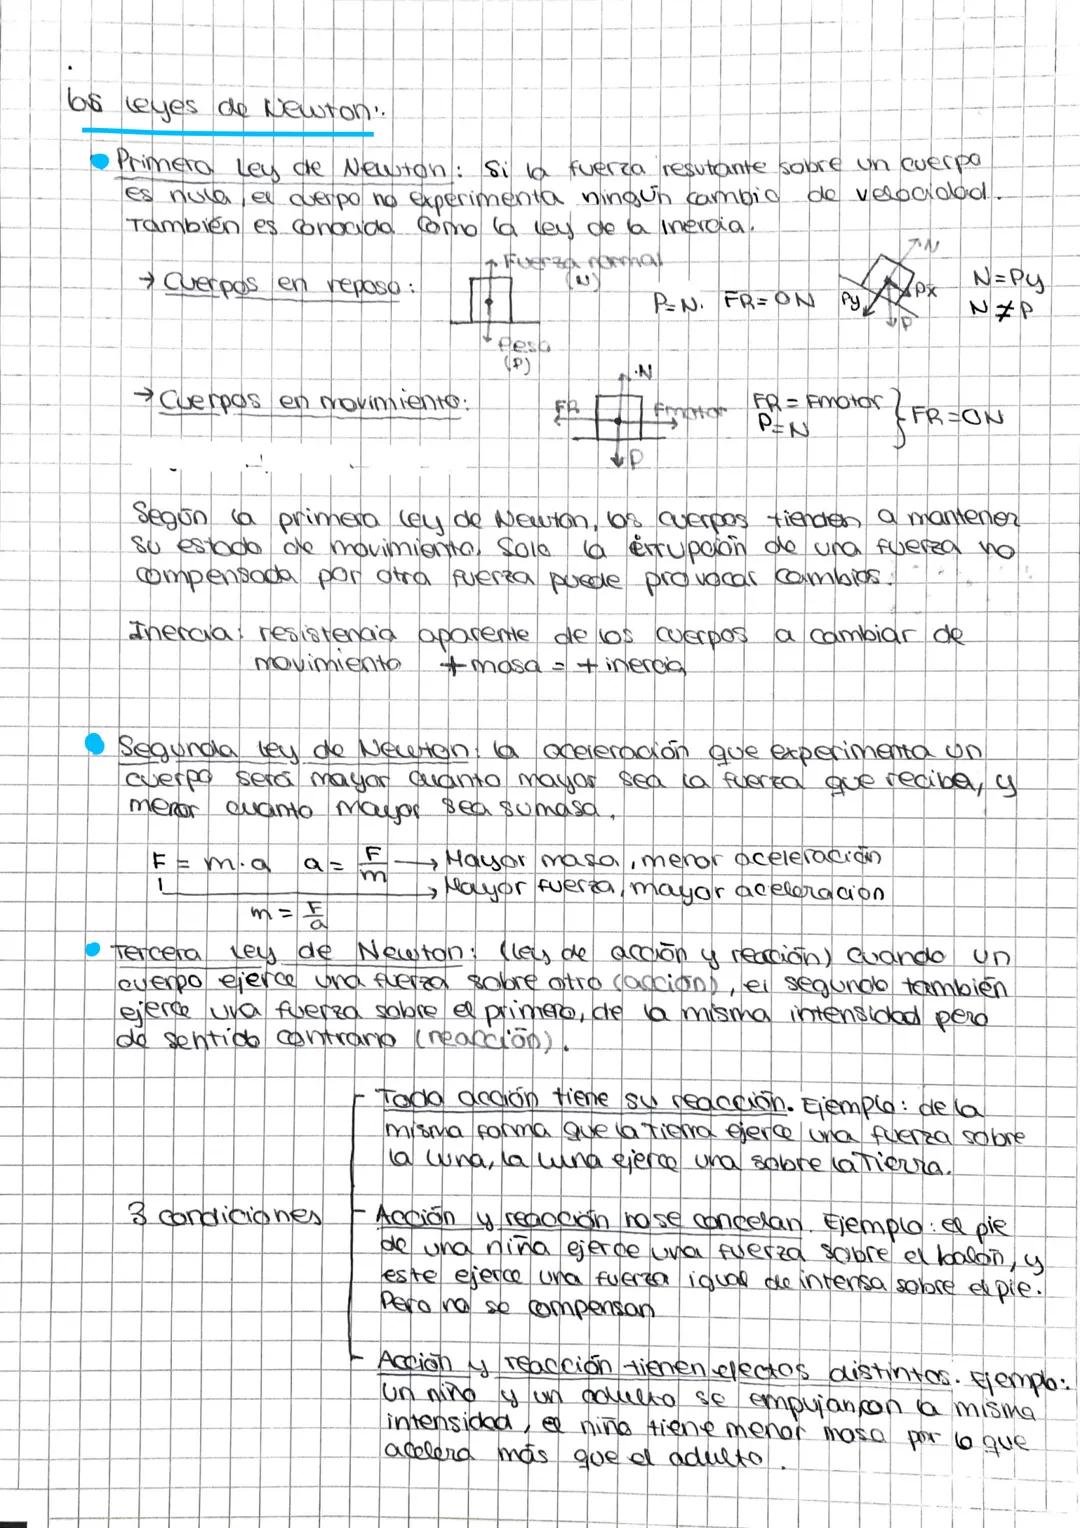 las leyes de Newton:
Primera Ley de Newton: Si la fuerza resutante sobre un cuerpo
es nula, el cuerpo no experimenta ningún cambio de velocidad.
También es conocida como la ley de la inercia.
→ Cuerpos en reposo:
Fuerza normal
(N)
Peso
(P)
P=N. FR=0N
N
Px
Py
P
N=Py
N≠P
→ Cuerpos en movimiento:
N
FR
Fmotor
P
FR=Fmotor
P=N
FR=0N
Según la primera ley de Newton, los cuerpos tienden a mantener
su estado de movimiento, Solo la errupción de una fuerza no
compensada por otra fuerza puede provocar cambios.
Inercia: resistencia aparente de los cuerpos a cambiar de
movimiento +masa = +inercia
Segunda ley de Newton: la aceleración que experimenta un
cuerpo será mayor cuanto mayor sea la fuerza que reciba, y
menor cuanto mayor sea su masa.
F = m·a a = F/m → Mayor masa, menor aceleración
→ Mayor fuerza, mayor aceleracion
m = F/a
Tercera ley de Newton: (ley de acción y reacción) Cuando un
cuerpo ejerce una fuerza sobre otro (acción), el segundo también
ejerce una fuerza sobre el primero, de la misma intensidad pero
de sentido contrario (reacción).
3 condiciones
Toda acción tiene su reacción. Ejemplo: de la
misma forma que la Tierra ejerce una fuerza sobre
la luna, la luna ejerce una sobre la Tierra.
Acción y reacción no se cancelan. Ejemplo: el pie
de una niña ejerce una fuerza sobre el balón, y
este ejerce una fuerza igual de intensa sobre el pie.
Pero no se compensan
Acción y reacción tienen efectos distintos. Ejemplo:
un niño y un adulto se empujan con la misma
intensidad, el niño tiene menor masa por lo que
acelera más que el adulto.